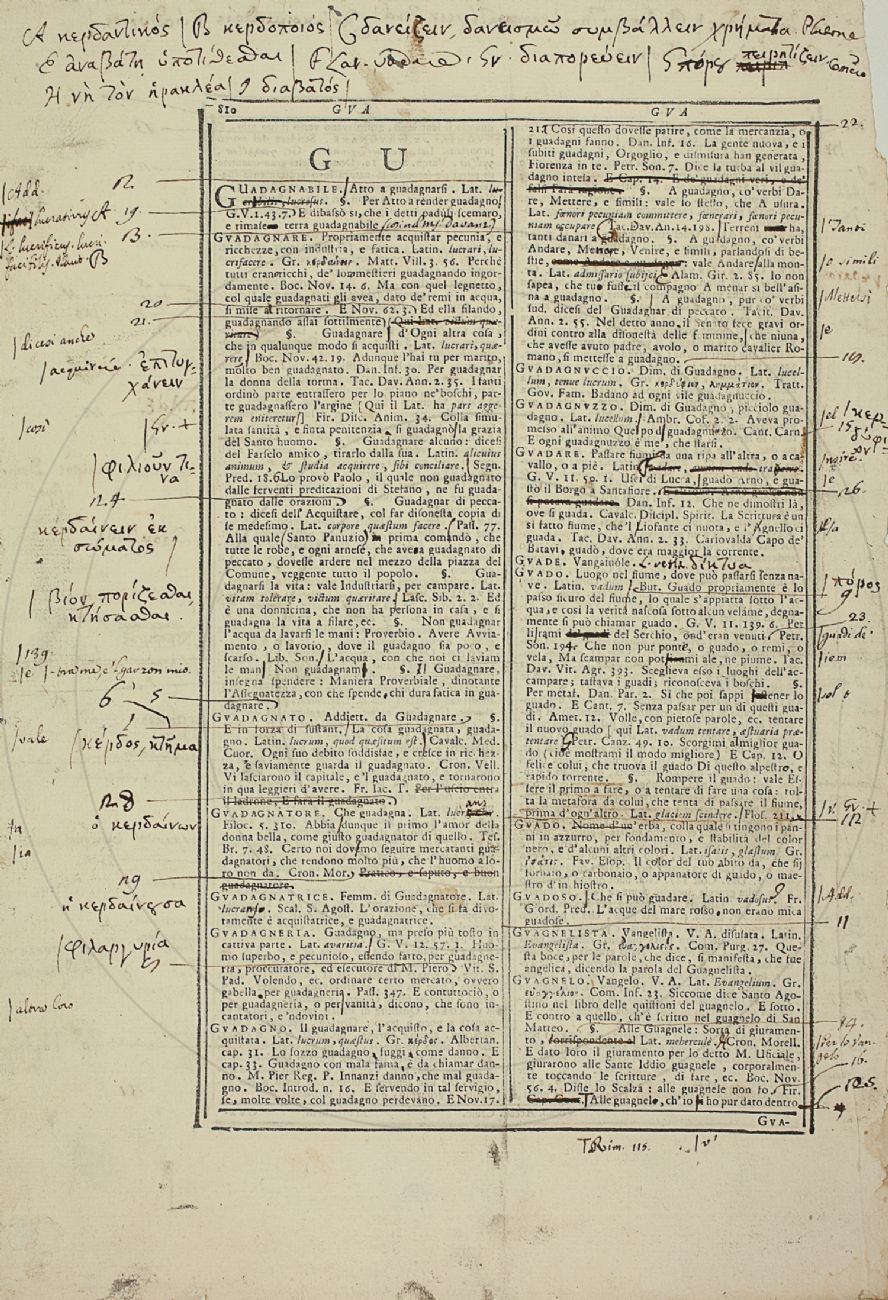 Α κερδαντικός | Β κερδοποιός | C δανείζειν, δανεισμῷ συμβάλλειν χρήματα.
ἀναβάτῃ ὑποτίθεσθαι | Gr. διαπορεύειν | πόρος
Η νὴ τὸν ἡρακλέα | διαβατός |
810 GVA GVA
G U
GUADAGNABILE. Atto a guadagnarsi. Lat.
§. Per Atto a render guadagno
G. V. 1. 43. 7. E dibassò sì, che i detti padúli scemaro,
e rimase terra guadagnabile
GVADAGNARE. Propriamente acquistar pecunia, e
ricchezze, con industria, e fatica. Latin. lucrari, lu-
crifacere. Gr. Matt. Vill. 3. 56. Perchè
tutti eran ricchi, de' lor mestieri guadagnando ingor-
damente. Boc. Nov. 14. 6. Ma con quel legnetto,
col quale guadagnati gli avea, dato de' remi in acqua,
si mise al ritornare. E Nov. 62. 3. Ed ella filando,
guadagnando assai sottilmente
§. Guadagnare d'Ogni altra cosa,
che in qualunque modo si acquisti. Lat. lucrari, quæ-
rere. Boc. Nov. 42. 19. Adunque l'hai tu per marito,
molto ben guadagnato. Dan. Inf. 30. Per guadagnar
la donna della torma. Tac. Dav. Ann. 2. 35. I fanti
ordinò parte entrassero per lo piano ne' boschi, par-
te guadagnassero l'argine [Qui il Lat. ha pars agge-
rem eniteretur] Fir. Disc. Anim. 34. Colla simu-
lata santità, e finta penitenzia, si guadagnò la grazia
del Santo huomo. §. Guadagnare alcuno: dicesi
del Farselo amico, tirarlo dalla sua. Latin. alicuius
animum, & studia acquirere, sibi conciliare. Segn.
Pred. 18. 6 Lo provò Paolo, il quale non guadagnato
dalle ferventi predicazioni di Stefano, ne fu guada-
gnato dalle orazioni. §. Guadagnar di pecca-
to: dicesi dell'Acquistare, col far disonesta copia di
se medesimo. Lat. corpore quæstum facere. Pass. 77.
Alla quale (Santo Panuzio) in prima comandò, che
tutte le robe, e ogni arnese, che avesse guadagnato di
peccato, dovesse ardere nel mezzo della piazza del
Comune, veggente tutto il popolo. §. Gua-
dagnarsi la vita: vale Industriarsi, per campare. Lat.
vitam tolerare, victum quæritare. Lasc. Sib. 2. 2. Ed
è una donnicina, che non ha persona in casa, e si
guadagna la vita a filare, ec. §. Non guadagnar
l'acqua da lavarsi le mani: Proverbio. Avere Avvia-
mento, o lavorìo, dove il guadagno sia poco, e
scarso. Lib. Son. L'acqua, con che noi ci laviam
le man Non guadagnam §. Il Guadagnare,
insegna spendere: Maniera Proverbiale, dinotante
l'Assegnatezza, con che spende, chi dura fatica in gua-
dagnare.
GVADAGNATO. Addiett. da Guadagnare. §.
E in forza di sustant. La cosa guadagnata, guada-
gno. Latin. lucrum, quod quæsitum est. Cavalc. Med.
Cuor. Ogni suo debito soddisfae, e cresce in ricchez-
za, e saviamente guarda il guadagno. Cron. Vell.
Vi lasciarono il capitale, e 'l guadagno, e tornarono
in qua leggieri d'avere. Fr. Iac. T. Per l'uscio entra
il ladrone, E fara il guadagnato.
GUADAGNATORE. Che guadagna. Lat.
Filoc. 5. 310. Abbia dunque il primo l'amor della
donna bella, come giusto guadagnator di quello. Tes.
Br. 7. 48. Certo noi dovemo seguire mercatanti gua-
dagnatori, che rendono molto più, che l'huomo a lo-
ro non da. Cron. Mor. Pratico, e saputo, e buon
guadagnatore.
GUADAGNATRICE. Femm. di Guadagnatore. Lat.
Scal. S. Agost. L'orazione, che si fa divo-
tamente è acquistatrice, e guadagnatrice.
GUADAGNERIA. Guadagno, ma preso più tosto in
cattiva parte. Lat. avaritia. G. V. 12. 57. 1. Huo-
mo superbo, e pecunioso, essendo fatto, per guadagne-
ria, proccuratore, ed esecutore di M. Piero. Vit. S.
Pad. Volendo, ec. ordinare certo mercato, ovvero
gabella, per guadagneria. Pass. 347. E contuttociò, o
per guadagneria, o per vanità, dicono, che sono in-
cantatori, e 'ndovini.
GVADAGNO. Il guadagnare, l'acquisto, e la cosa ac-
quistata. Lat. lucrum, quæstus. Gr. κέρδος. Albertan.
cap. 31. Lo sozzo guadagno, fuggi, come danno. E
cap. 33. Guadagno con mala fama, è da chiamar dan-
no. M. Pier Reg. P. Innanzi danno, che mal guada-
gno. Boc. Introd. n. 16. E servendo in tal servigio,
se, molte volte, col guadagno perdevano. E Nov. 17.
21. Così questo dovesse patire, come la mercanzia, o
i guadagni fanno. Dan. Inf. 16. La gente nuova, e i
subiti guadagni, Orgoglio, e dismisura han generata,
Fiorenza in te. Petr. Son. 7. Dice la turba al vil gua-
dagno intesa. E Cap. 14.
§. A guadagno, co' verbi Da-
re, Mettere, e simili: vale lo stesso, che A usura.
Lat. fœnori pecuniam committere, fœnerari, fœnori pecu-
niam occupare. Tac. Dav. An. 14. 198. Terreni ha,
tanti danari a guadagno. §. A guadagno, co' verbi
Andare, Menare, Venire, e simili, parlandosi di be-
stie, vale Andare alla mon-
ta. Lat. admissario subiici. Alam. Gir. 2. 85. Io non
sapea, che tu fussi il compagno A menar si bell' asi-
na a guadagno. §. A guadagno, pur co' verbi
sud. dicesi del Guadagnar di peccato. Tacit. Dav.
Ann. 2. 55. Nel detto anno il Senato fece gravi or-
dini contro alla disonestà delle femmine, che niuna,
che avesse avuto padre, avolo, o marito cavalier Ro-
mano, si mettesse a guadagno.
GUADAGNVCCIO. Dim. di Guadagno. Lat. lucel-
lum, tenue lucrum. Gr. κερδύφιον, λημμάτιον. Tratt.
Gov. Fam. Badano ad ogni vile guadagnuccio.
GUADAGNVZZO. Dim. di Guadagno, picciolo gua-
dagno. Lat. lucellum. Ambr. Cof. 2. 2. Aveva pro-
messo all'animo Quel po' di guadagnuzzo. Cant. Carn.
E ogni guadagnuzzo è me', che starsi.
GUADARE. Passare fiumi da una ripa all'altra, o a ca-
vallo, o a piè. Latin.
G. V. 11. 50. 1. Usì di Lucca, guadò Arno, e gua-
stò il Borgo a Santafiore.
Dan. Inf. 12. Che ne dimostri là,
ove si guada. Cavalc. Discipl. Spirit. La Scrittura è un
sì fatto fiume, che 'l Liofante ci nuota, e l'Agnello ci
guada. Tac. Dav. Ann. 2. 33. Cariovalda Capo de'
Batavi, guadò, dove era maggior la corrente.
GVADE. Vangaiuole.
GVADO. Luogo nel fiume, dove può passarsi senza na-
ve. Latin. vadum. But. Guado propriamente è lo
passo sicuro del fiume, lo quale s'appiatta sotto l'ac-
qua, e così la verità nascosa sotto alcun velame, degna-
mente si può chiamar guado. G. V. 11. 139. 6. Per
li rami del Serchio, ond'eran venuti. Petr.
Son. 194. Che non pur ponte, o guado, o remi, o
vela, Ma scampar non potiemmi ale, ne piume. Tac.
Dav. Vit. Agr. 393. Sceglieva esso i luoghi dell'ac-
campare; tastava i guadi; riconosceva i boschi. §.
Per metaf. Dan. Par. 2. Sì che poi sappi sostener lo
guado. E Cant. 7. Senza passar per un di questi gua-
di. Amet. 12. Volle, con pietose parole, ec. tentare
il nuovo guado [qui Lat. vadum tentare, æstuaria præ-
tentare] Petr. Canz. 49. 10. Scorgimi al miglior gua-
do (cioè mostrami il modo migliore) E Cap. 12. O
felice colui, che truova il guado Di questo alpestro, e
rapido torrente. §. Rompere il guado: vale Es-
sere il primo a fare, o a tentare di fare una cosa: tol-
ta la metafora da colui, che tenta di passare il fiume,
prima d'ogn'altro. Lat. glaciem scindere. Flos. 211.
GVADO. Nome d'un'erba, colla quale si tingono i pan-
ni in azzurro, per fondamento, e stabilità del color
nero, e d'alcuni altri colori. Lat. isatis, glastum. Gr.
ἰσάτις. Fav. Esop. Il color del tuo abito da, che sij
fornaio, o carbonaio, o appanatore di guado, o mae-
stro d'inchiostro.
GVADOSO. Che si può guadare. Latin vadosus.
G'ord. Pred. L'acque del mare rosso, non erano mica
guadose.
GVAGNELISTA. Vangelista. V. A. disusata. Latin.
Evangelista. Gr. Com. Purg. 27. Que-
sta boce, per le parole, che dice, si manifesta, che fue
angelica, dicendo la parola del Guagnelista.
GVAGNELO. Vangelo. V. A. Lat. Evangelium. Gr.
εὐαγγέλιον. Com. Inf. 23. Siccome dice Santo Ago-
stino nel libro delle quistioni del guagnelo. E sotto.
E contro a quello, ch'è scritto nel guagnelo di San
Matteo. §. Alle Guagnele: Sorta di giuramen-
to, Lat. mehercule. Cron. Morell.
E dato loro il giuramento per lo detto M. Uficiale,
giurarono alle Sante Iddio guagnele, corporalmen-
te toccando le scritture, di fare, ec. Boc. Nov.
56. 4. Disse lo Scalza: alle guagnele non fo. Fir.
Alle guagnele, ch'io sì ho pur dato dentro
GVA-
Add.
19.
20
21.
dicesi anche
ἐπιτυγ-
χάνειν
così
Gr. +
φιλιοῦν τι-
να
24
κερδαίνειν ἐκ
σώματος
βίον πορίζεσθαι,
κτήσασθαι.
139.
6 5
vale
κέρδος, κτῆμα
28
ὁ κερδαίνων
29
ἡ κερδαίνουσα
φιλαργυρία
22.
o simili
Mettersi
κερ-
δύφι-
ον
15
126.
πόρος
9
23.
112
Add.
11
84.
16.
125.
Rim. 115.